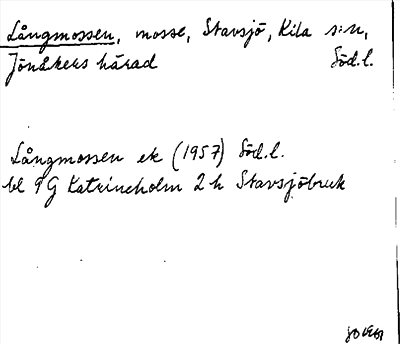 Långmossen, mosse, Stavsjö, Kila s:n,
Jönåkers härad Söd.l.
Långmossen ek (1957) Söd.l.
bl 9G Katrineholm 2 h Stavsjöbruk